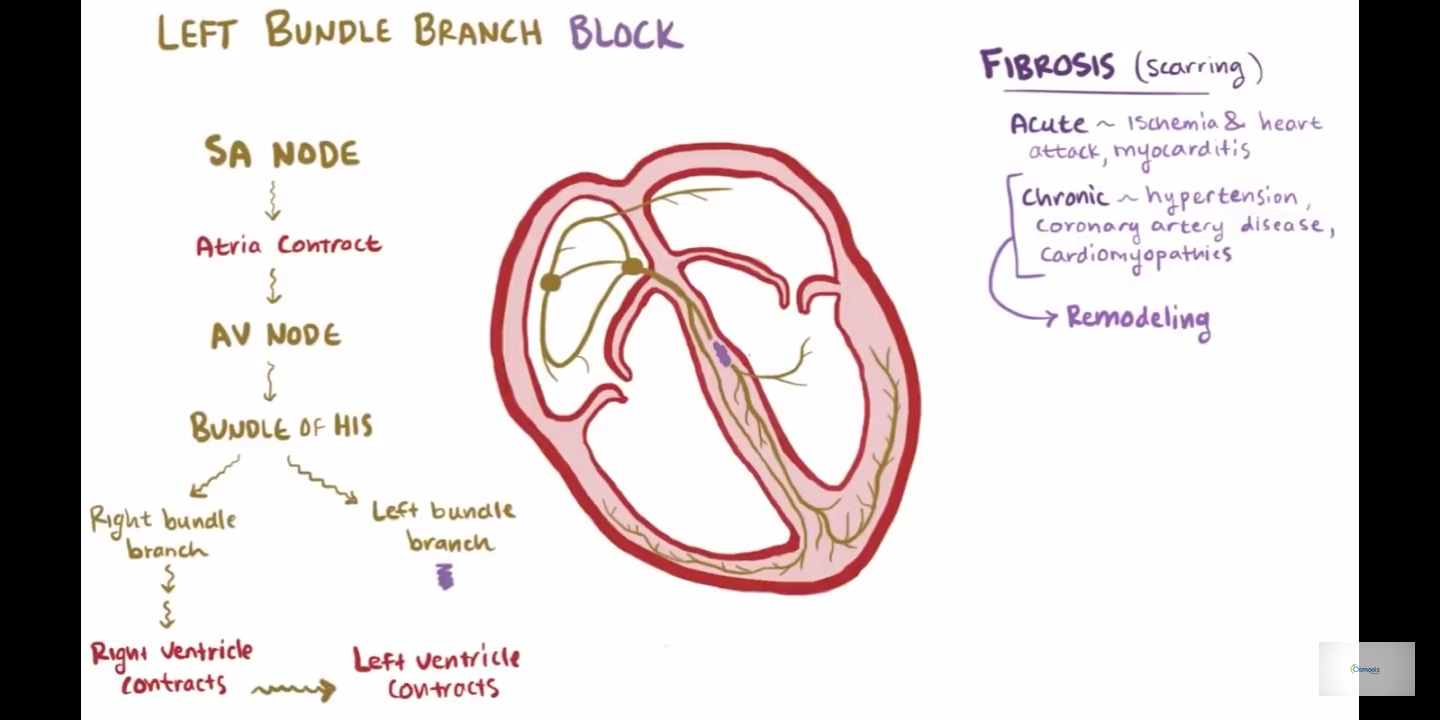 LEFT BUNDLE BRANCH BLOCK
SA NODE
Atria Contract
AV NODE
BUNDLE OF HIS
Right bundle
branch
Left bundle
branch
Right ventricle
contracts
Left ventricle
contracts
FIBROSIS (scarring)
Acute ~ Ischemia & heart
attack, myocarditis
Chronic ~ hypertension,
coronary artery disease,
cardiomyopathies
Remodeling
Osmosis